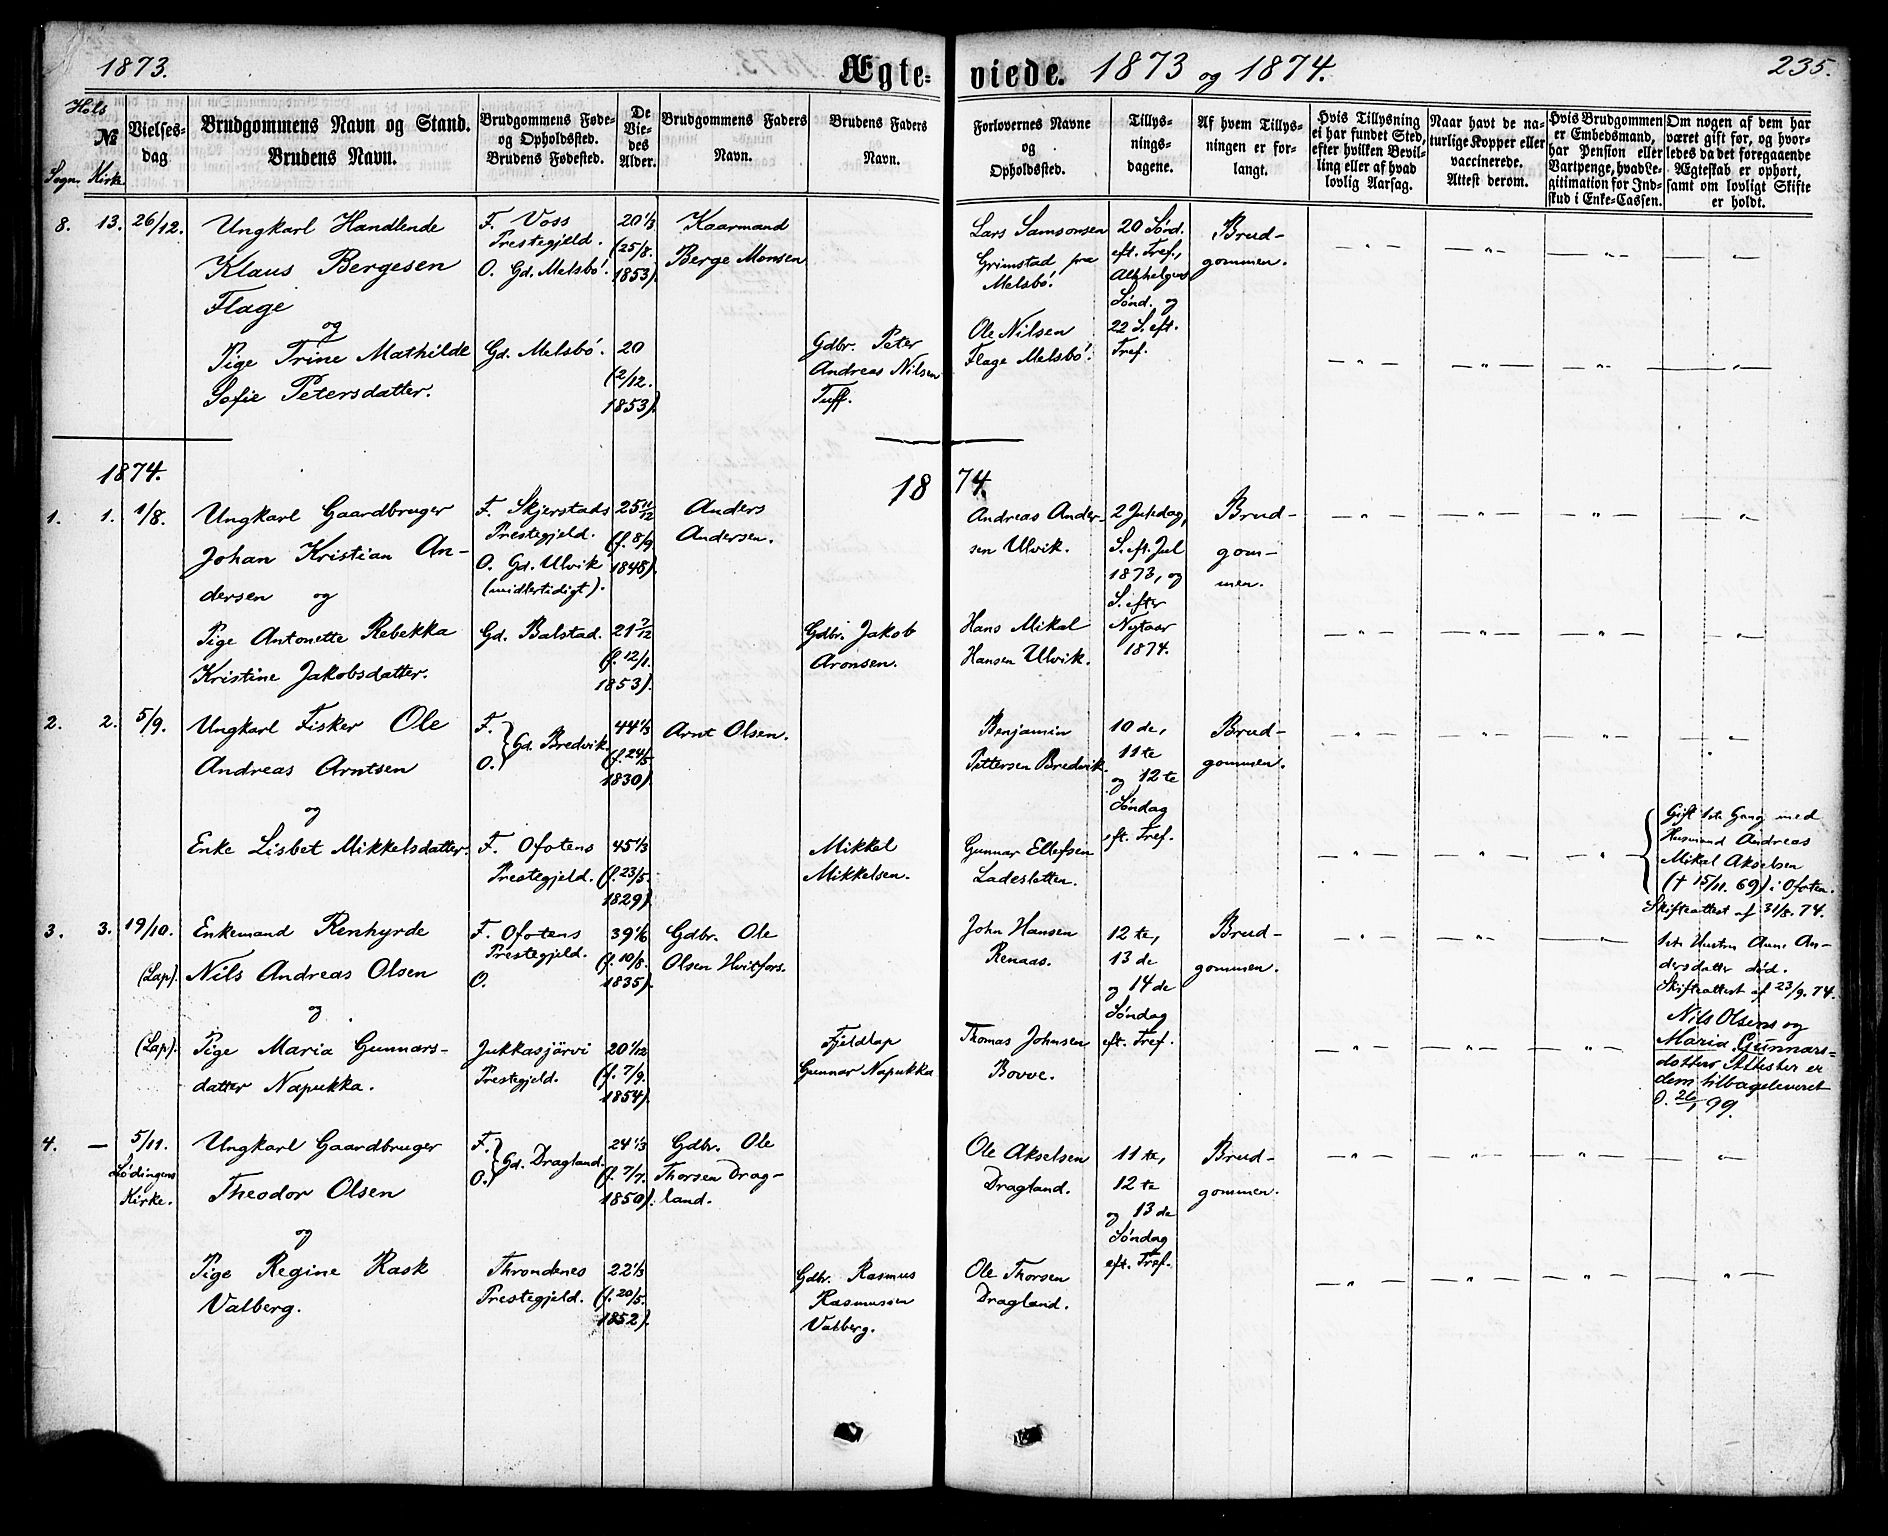 1873.
Ægte-
viede. 1873 og 1874.
235.
Hols
№
Sogn. Kirke
Vielses-
dag
Brudgommens Navn og Stand.
Brudens Navn.
Brudgommens Føde-
og Opholdssted.
Brudens Fødested.
De
Vie-
des
Alder.
Brudgommens Faders
Navn.
Brudens Faders
Navn.
Forlovernes Navne
og
Opholdssted.
Tillys-
nings-
dagene.
Af hvem Tillys-
ningen er for-
langt.
Hvis Tillysning
ei har fundet Sted,
efter hvilken Bevil-
ling eller af hvad
lovlig Aarsag.
Naar havt de na-
turlige Kopper eller
vaccinerede.
Attest derom.
Hvis Brudgommen
er Embedsmand,
har Pension eller
Vartpenge, hvad Le-
gitimation for Ind-
skud i Enke-Cassen.
Om nogen af dem har
været gift før, og hvor-
ledes da det foregaaende
Ægteskab er ophørt,
samt om lovligt Skifte
er holdt.
8. 13. 26/12.
Ungkarl Handlende
Klaus Bergesen
Flage
og
Pige Trine Mathilde
Sofie Petersdatter.
F. Voss
Prestegjeld.
O. Gd. Melsbö.
Gd. Melsbö.
20 1/3
(25/8.
1853).
20
(2/12.
1853).
Kaarmand
Berge Monsen
Gdbr. Peter
Andreas Nilsen
Tuff.
Lars Samsonsen
Grimstad fra
Melsbö.
Ole Nilsen
Flage Melsbö.
20 Sönd.
eft. Tref.,
Allehelgens
Sönd. og
22 S. eft.
Tref.
Brud-
gommen.
1874.
18 74.
1. 1. 1/8.
Ungkarl Gaardbruger
Johan Kristian An-
dersen og
Pige Antonette Rebekka
Kristine Jakobsdatter.
F. Skjerstads
Prestegjeld.
O. Gd. Ulvik
(midlertidigt).
Gd. Balstad.
25 11/12
(f. 8/9
1848).
21 7/12
(f. 12/1.
1853).
Anders
Andersen.
Gdbr. Jakob
Aronsen.
Andreas Ander-
sen Ulvik.
Hans Mikal
Hansen Ulvik.
2 Juledag,
S. eft. Jul
1873, og
S. efter
Nytaar
1874.
Brud-
gom-
men.
2. 2. 5/9.
Ungkarl Fisker Ole
Andreas Arntsen
og
Enke Lisbet Mikkelsdatter.
F.
O. Gd. Bredvik.
F. Ofotens
Prestegjeld.
44 1/3
(f. 24/5
1830).
45 1/3
(f. 23/5.
1829).
Arnt Olsen.
Mikkel
Mikkelsen.
Benjamin
Pettersen Bredvik.
Gunnar Ellefsen
Ladesletten.
10 de,
11 te
og 12 te
Söndag
eft. Tref.
Brud-
gommen.
Gift 1ste Gang med
Husmand Andreas
Mikal Akselsen
(† 15/11. 69) i Ofoten.
Skifteattest af 31/8. 74.
3. 3. 19/10.
(Lap).
Enkemand Renhyrde
Nils Andreas Olsen
og
(Lap).
Pige Maria Gunnars-
datter Napukka.
F. Ofotens
Prestegjeld.
O.
Jukkasjärvi
Prestegjeld.
39 1/6
(f. 10/8.
1835).
20 1/12
(f. 7/9.
1854).
Gdbr. Ole
Olsen Hvitfors.
Fjeldlap
Gunnar Napukka
John Hansen
Renaas.
Thomas Johnsen
Bovve.
12 te,
13 de
og 14 de
Söndag
eft. Tref.
Brud-
gommen.
1ste Hustru Anne An-
dersdatter död.
Skifteattest af 23/9. 74.
Nils Olsens og
Maria Gunnars-
dotters Attester er
dem tilbageleveret
O. 26/1 99.
4. — 5/11.
Lödingens
Kirke.
Ungkarl Gaardbruger
Theodor Olsen
og
Pige Regine Rask
Valberg.
F.
O. Gd. Dragland.
Throndenes
Prestegjeld.
24 1/3
(f. 7/7.
1850).
22 1/3
(f. 20/5.
1852).
Gdbr. Ole
Thorsen Drag-
land.
Gdbr. Rasmus
Rasmussen
Valberg.
Ole Akselsen
Dragland.
Ole Thorsen
Dragland.
11 te,
12 te
og 13 de
Söndag
eft. Tref.
Brud-
gommen.